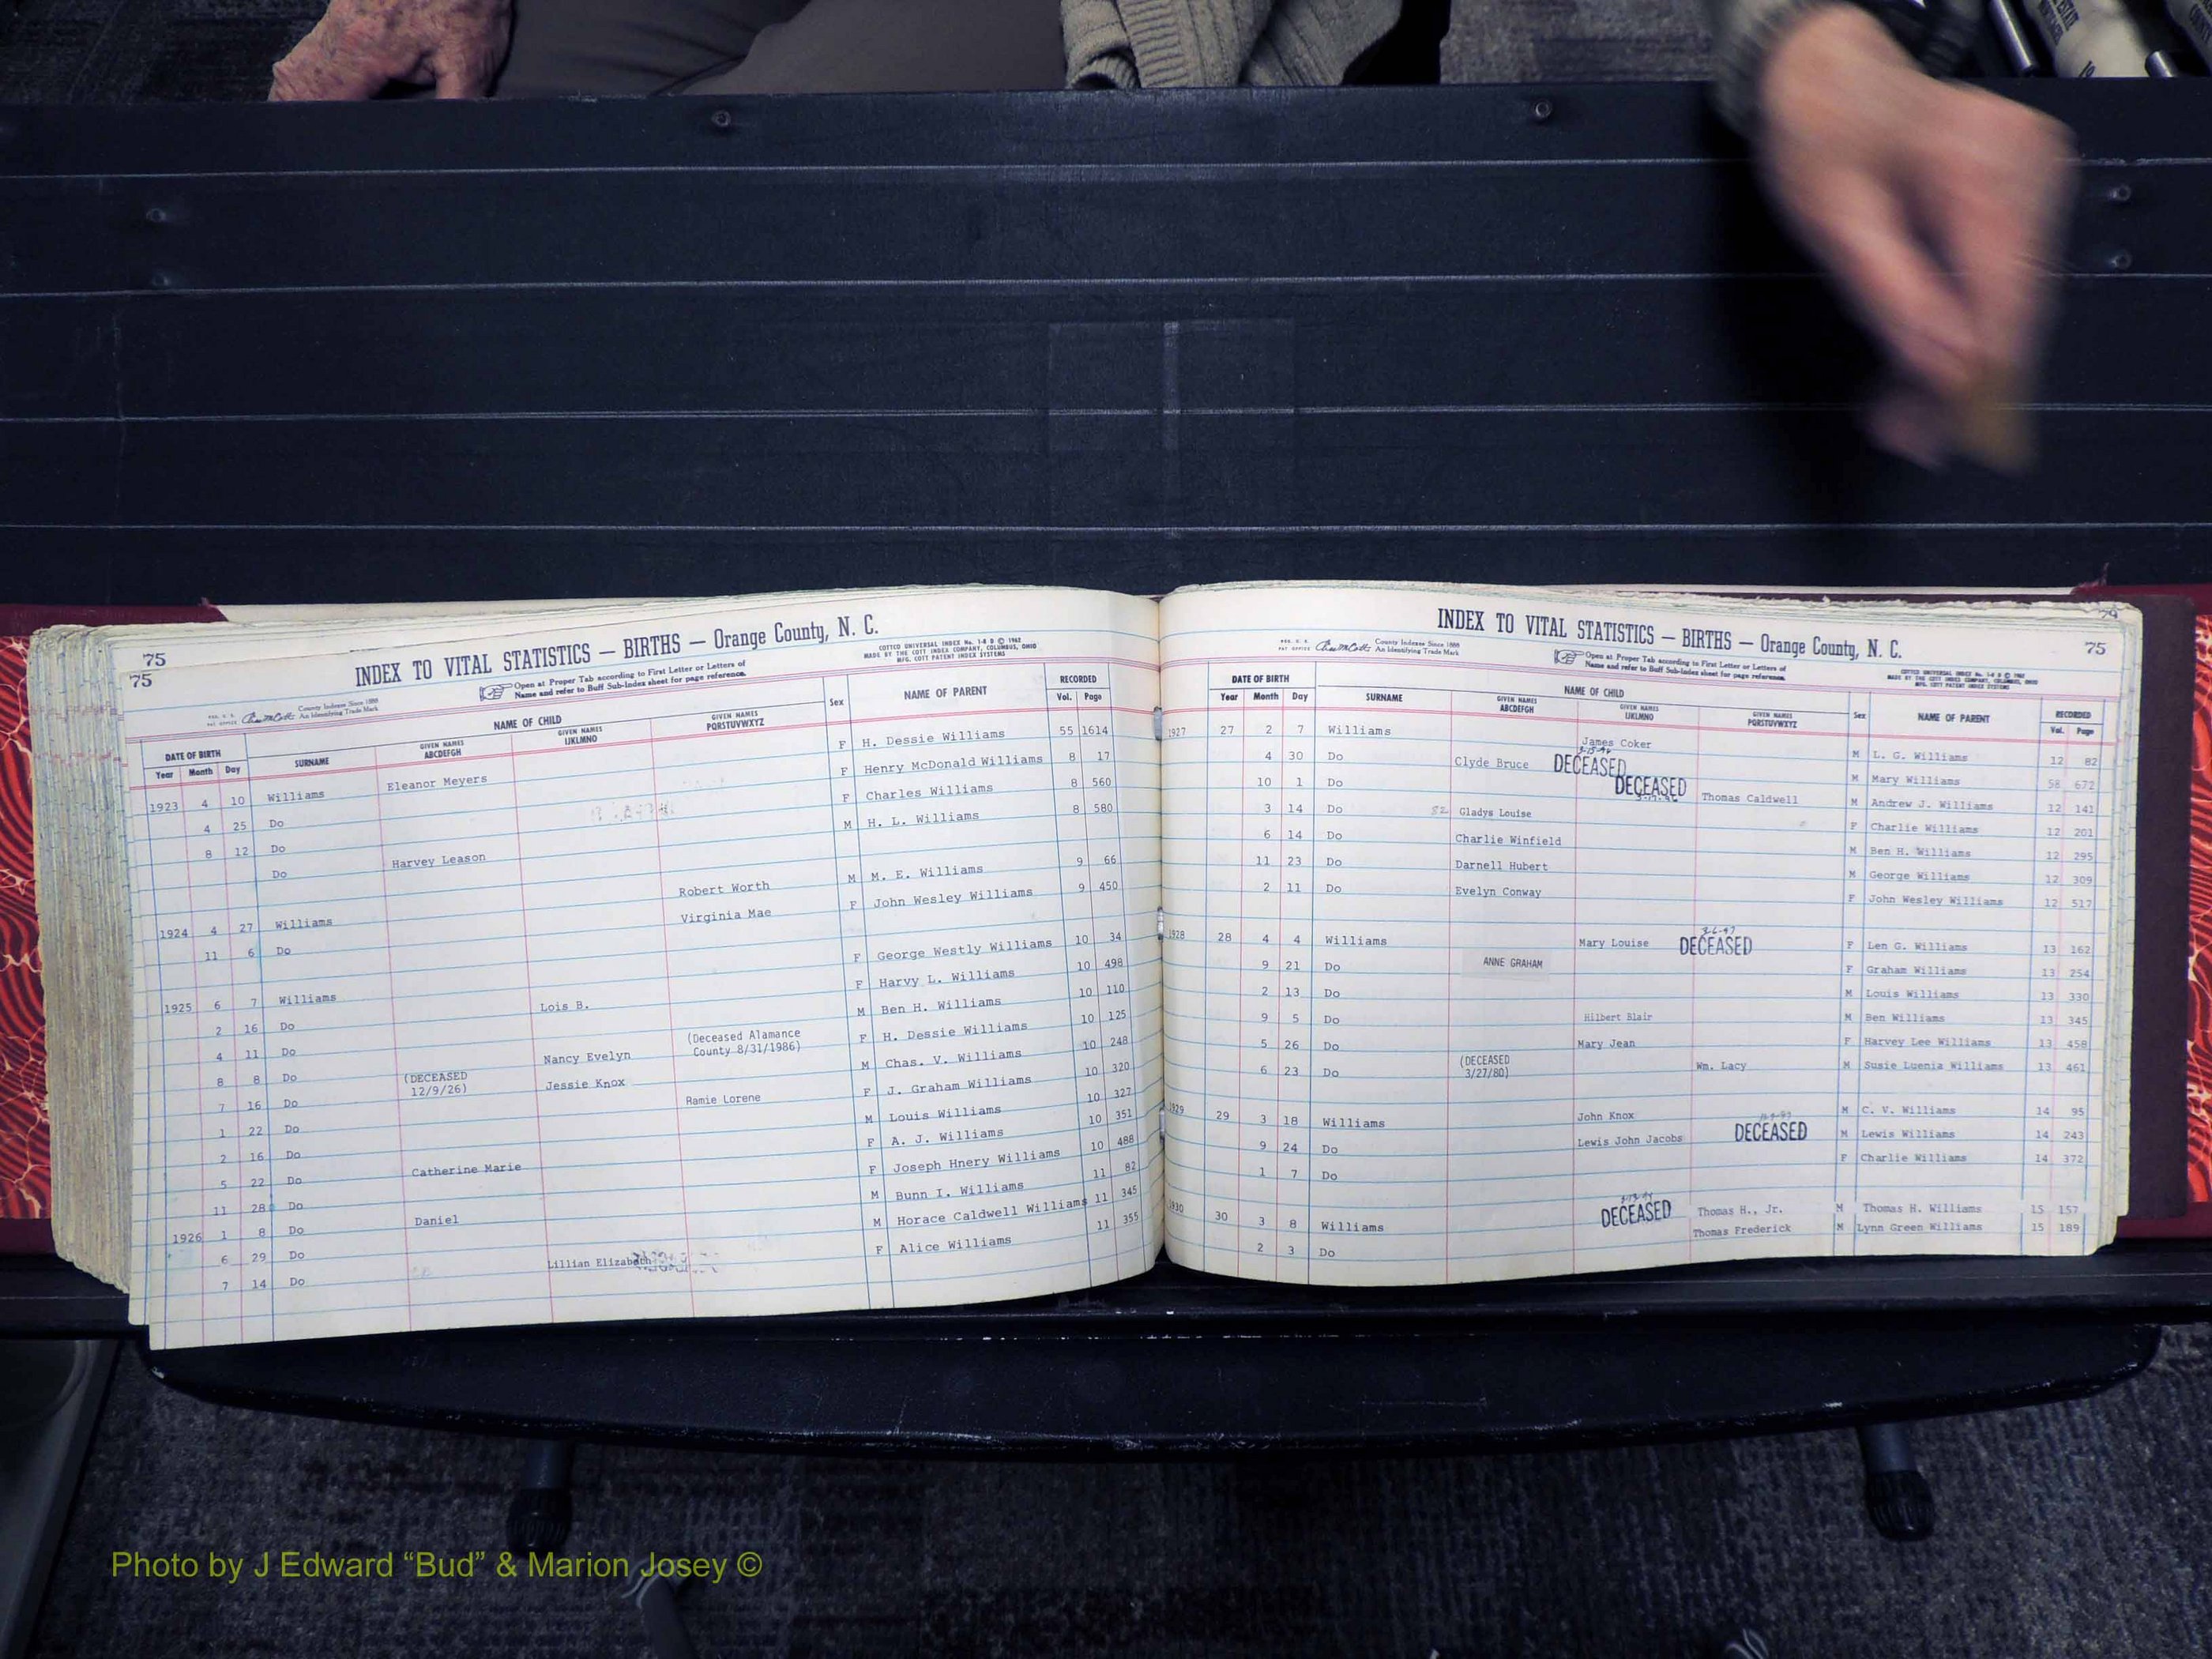 75
75
INDEX TO VITAL STATISTICS — BIRTHS — Orange County, N. C.
COTTCO UNIVERSAL INDEX No. 1-8 D © 1962
MADE BY THE COTT INDEX COMPANY, COLUMBUS, OHIO
MFG. COTT PATENT INDEX SYSTEMS
County Indexes Since 1888
An Identifying Trade Mark
Open at Proper Tab according to First Letter or Letters of
Name and refer to Buff Sub-Index sheet for page reference.
DATE OF BIRTH NAME OF CHILD Sex NAME OF PARENT RECORDED
Year Month Day SURNAME GIVEN NAMES ABCDEFGH GIVEN NAMES IJKLMNO GIVEN NAMES PQRSTUVWXYZ Vol. Page
1923 4 10 Williams Eleanor Meyers F H. Dessie Williams 55 1614
4 25 Do F Henry McDonald Williams 8 17
8 12 Do F Charles Williams 8 560
Do Harvey Leason M H. L. Williams 8 580
1924 4 27 Williams Robert Worth M M. E. Williams 9 66
11 6 Do Virginia Mae F John Wesley Williams 9 450
1925 6 7 Williams F George Westly Williams 10 34
2 16 Do Lois B. F Harvy L. Williams 10 498
4 11 Do M Ben H. Williams 10 110
8 8 Do Nancy Evelyn (Deceased Alamance County 8/31/1986) F H. Dessie Williams 10 125
7 16 Do (DECEASED 12/9/26) Jessie Knox M Chas. V. Williams 10 248
1 22 Do Ramie Lorene F J. Graham Williams 10 320
2 16 Do M Louis Williams 10 327
5 22 Do Catherine Marie F A. J. Williams 10 351
11 28 Do F Joseph Hnery Williams 10 488
1926 1 8 Do Daniel M Bunn I. Williams 11 82
6 29 Do M Horace Caldwell Williams 11 345
7 14 Do Lillian Elizabeth F Alice Williams 11 355
75
INDEX TO VITAL STATISTICS — BIRTHS — Orange County, N. C.
County Indexes Since 1888
An Identifying Trade Mark
Open at Proper Tab according to First Letter or Letters of
Name and refer to Buff Sub-Index sheet for page reference.
COTTCO UNIVERSAL INDEX No. 1-8 D © 1962
MADE BY THE COTT INDEX COMPANY, COLUMBUS, OHIO
MFG. COTT PATENT INDEX SYSTEMS
DATE OF BIRTH NAME OF CHILD Sex NAME OF PARENT RECORDED
Year Month Day SURNAME GIVEN NAMES ABCDEFGH GIVEN NAMES IJKLMNO GIVEN NAMES PQRSTUVWXYZ Vol. Page
1927 27 2 7 Williams James Coker M L. G. Williams 12 82
4 30 Do Clyde Bruce DECEASED M Mary Williams 58 672
10 1 Do DECEASED Thomas Caldwell M Andrew J. Williams 12 141
3 14 Do 82 Gladys Louise F Charlie Williams 12 201
6 14 Do Charlie Winfield M Ben H. Williams 12 295
11 23 Do Darnell Hubert M George Williams 12 309
2 11 Do Evelyn Conway F John Wesley Williams 12 517
1928 28 4 4 Williams Mary Louise DECEASED F Len G. Williams 13 162
9 21 Do ANNE GRAHAM F Graham Williams 13 254
2 13 Do M Louis Williams 13 330
9 5 Do Hilbert Blair M Ben Williams 13 345
5 26 Do Mary Jean F Harvey Lee Williams 13 458
6 23 Do (DECEASED 3/27/80) Wm. Lacy M Susie Luenia Williams 13 461
1929 29 3 18 Williams John Knox M C. V. Williams 14 95
9 24 Do Lewis John Jacobs DECEASED M Lewis Williams 14 243
1 7 Do F Charlie Williams 14 372
1930 30 3 8 Williams DECEASED Thomas H., Jr. M Thomas H. Williams 15 157
2 3 Do Thomas Frederick M Lynn Green Williams 15 189
Photo by J Edward “Bud” & Marion Josey ©